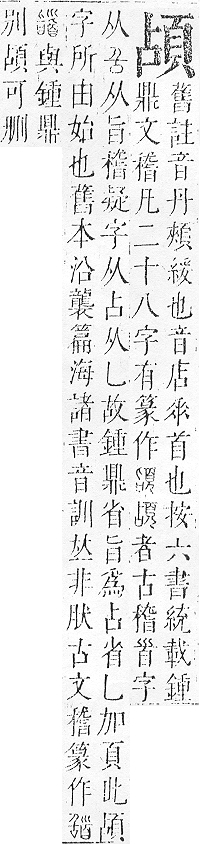 頕舊註音丹頰緩也音店𠂹首也按六書統載鍾
鼎文稽凡二十八字有篆作頕者古稽字
从从旨稽疑字从占从乚故鍾鼎省旨爲占省乚加頁此頕
字所由始也舊本沿襲篇海諸書音訓𠀤非肰古文稽篆作
與鍾鼎
別頕可刪